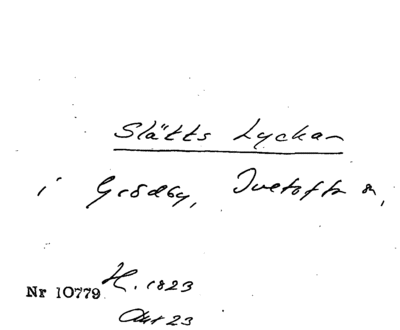 Slätts Lyckan
i Grödby, Ivetofta sn,
Nr 10779 H. 1823
Akt 23